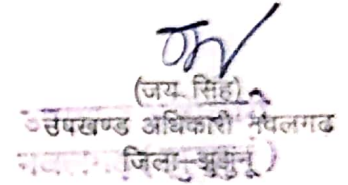 (जय सिंह)
उपखण्ड अधिकारी नवलगढ
जिला-झुझुनू